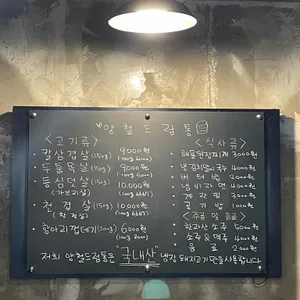 양철드럼통
<고기류>
칼삼겹살(150g) 9000원
(100g 6000)
두툼목살(150g) 9000원
(100g 6000)
등심덧살(150g) 10,000원
(가브리살) (100g 6667)
천겹살(150g) 10,000원
(100g 6667)
껍데기(200g) 6000원
(100g 3000)
<식사류>
해물된장찌개 3000원
냉김치말이국수 4000원
버터밥 2000원
냄비라면 4000원
계란찜 3000원
공기밥 1000원
<주류 및 음료>
5000원
소주&맥주 4000원
음료 2000원
저희 양철드럼통은 "국내산" 냉장 돼지고기만을사용합니다